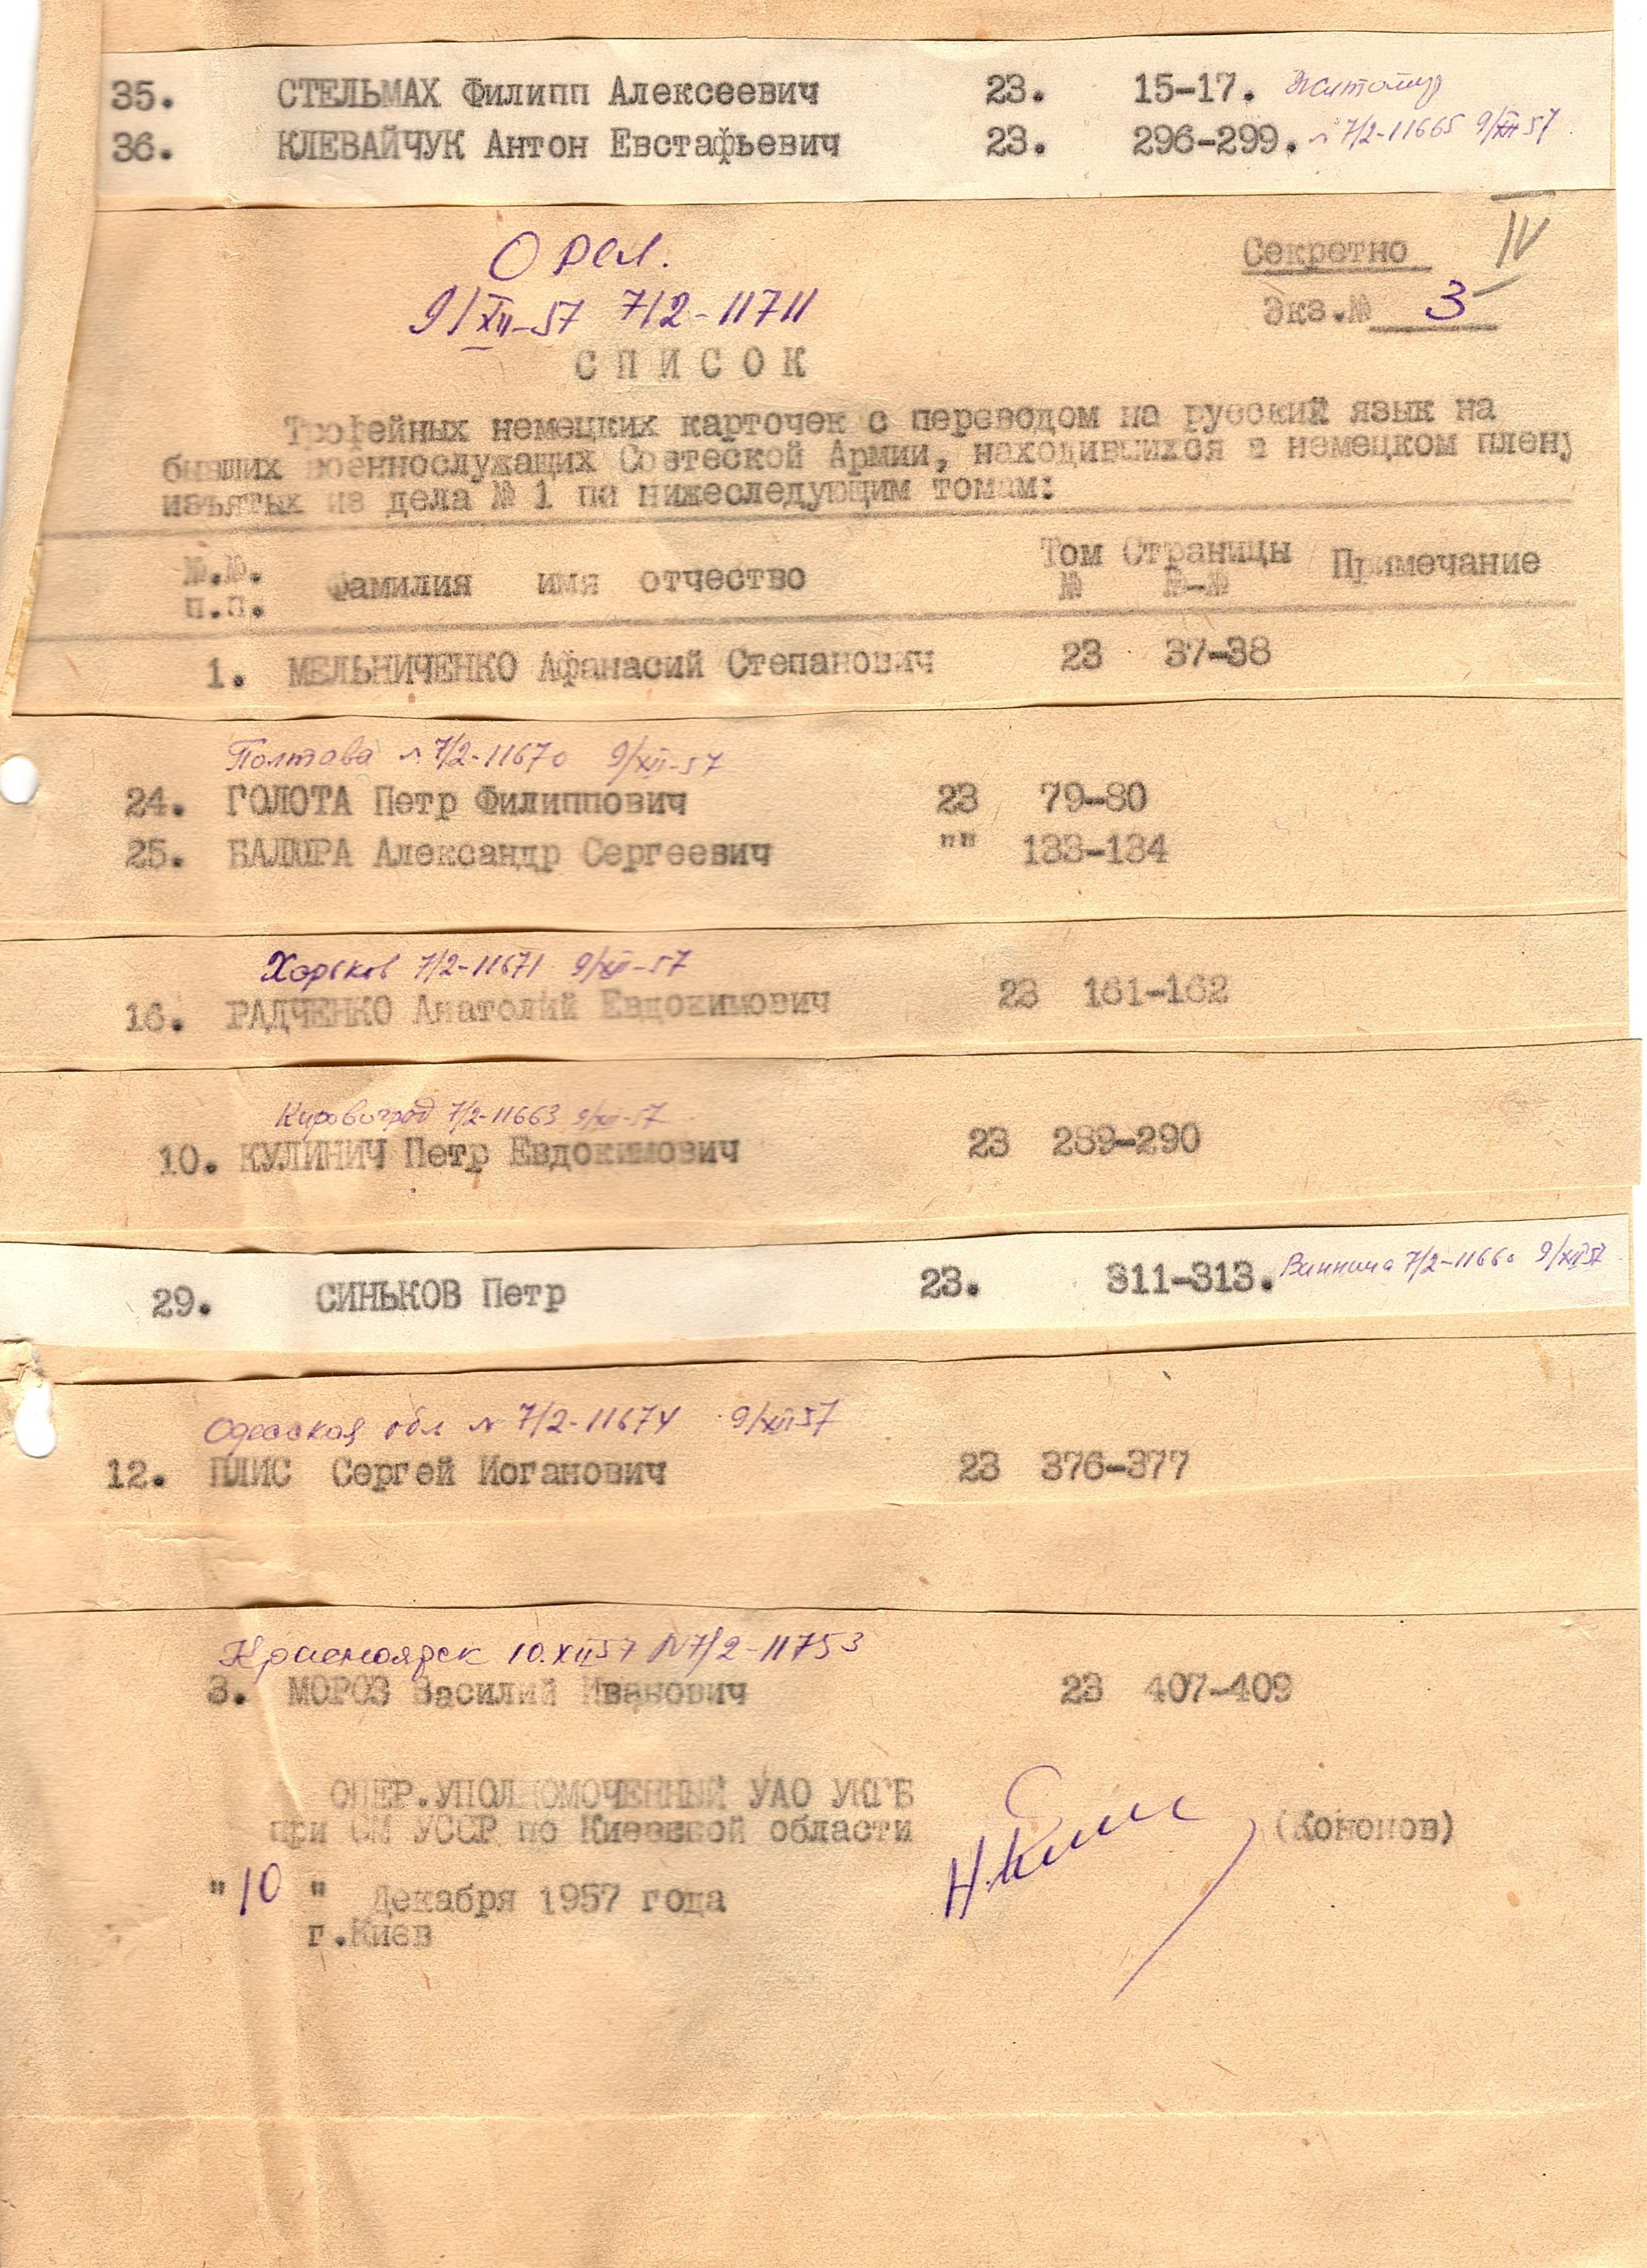 35. СТЕЛЬМАХ Филипп Алексеевич 23. 15-17. Житомир
36. КЛЕВАЙЧУК Антон Евстафьевич 23. 296-299. № 7/2-11665 9/XII 57
IV
Орел.
Секретно
9/XII-57 7/2-11711
Экз.№ 3
СПИСОК
Трофейных немецких карточек с переводом на русский язык на
бывших военнослужащих Советеской Армии, находившихся в немецком плену
изъятых из дела № 1 по нижеследующим томам:
№.№. п.п. Фамилия имя отчество Том № Страницы №-№ Примечание
1. МЕЛЬНИЧЕНКО Афанасий Степанович 23 37-38
Полтава № 7/2-11670 9/XII-57
24. ГОЛОТА Петр Филиппович 23 79-80
25. БАЛЮРА Александр Сергеевич "" 133-134
Харьков 7/2-11671 9/XII-57
16. РАДЧЕНКО Анатолий Евдокимович 23 161-162
Кировоград 7/2-11663 9/XII-57
10. КУЛИНИЧ Петр Евдокимович 23 289-290
29. СИНЬКОВ Петр 23. 311-313. Винница 7/2-11660 9/XII 57
Одесская обл № 7/2-11674 9/XII 57
12. ПЛИС Сергей Иоганович 23 376-377
Красноярск 10.XII 57 № 7/2-11753
3. МОРОЗ Василий Иванович 23 407-409
ОПЕР.УПОЛНОМОЧЕННЫЙ УАО УКГБ
при СМ УССР по Киевской области (Кононов)
"10" Декабря 1957 года
г.Киев